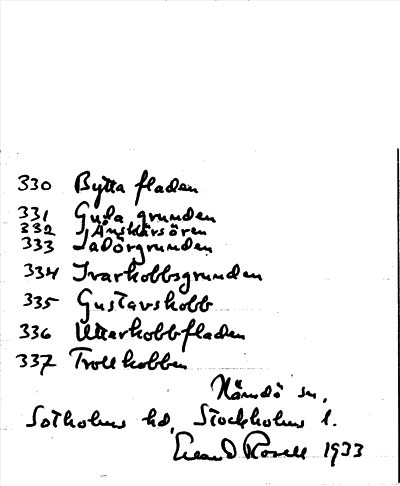 330 Bytta fladen
331 Gula grunden
332 Långskärsören
333 Ladörgrunden
334 Ivarkobbsgrunden
335 Gustavskobb
336 Utterkobbfladen
337 Trollkobben
Nämdö sn,
Sotholms hd, Stockholms l.
Rosell 1933